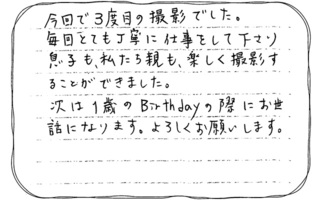 今回で3度目の撮影でした。
毎回とても丁寧に仕事をして下さり
息子も、私たち親も、楽しく撮影す
ることができました。
次は1歳のBirthdayの際にお世
話になります。よろしくお願いします。